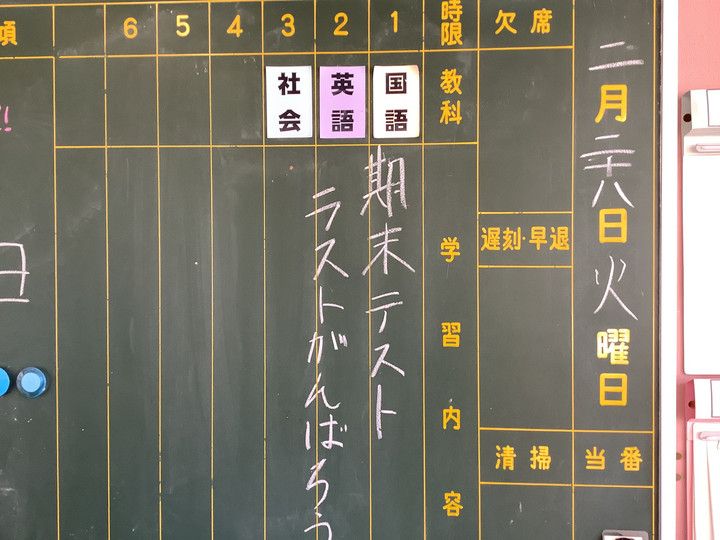 二月二十八日火曜日
当番
欠席
遅刻・早退
清掃
時限
教科
学習内容
1
国語
期末テスト
2
英語
ラストがんばろう
3
社会
4
5
6
項
!!